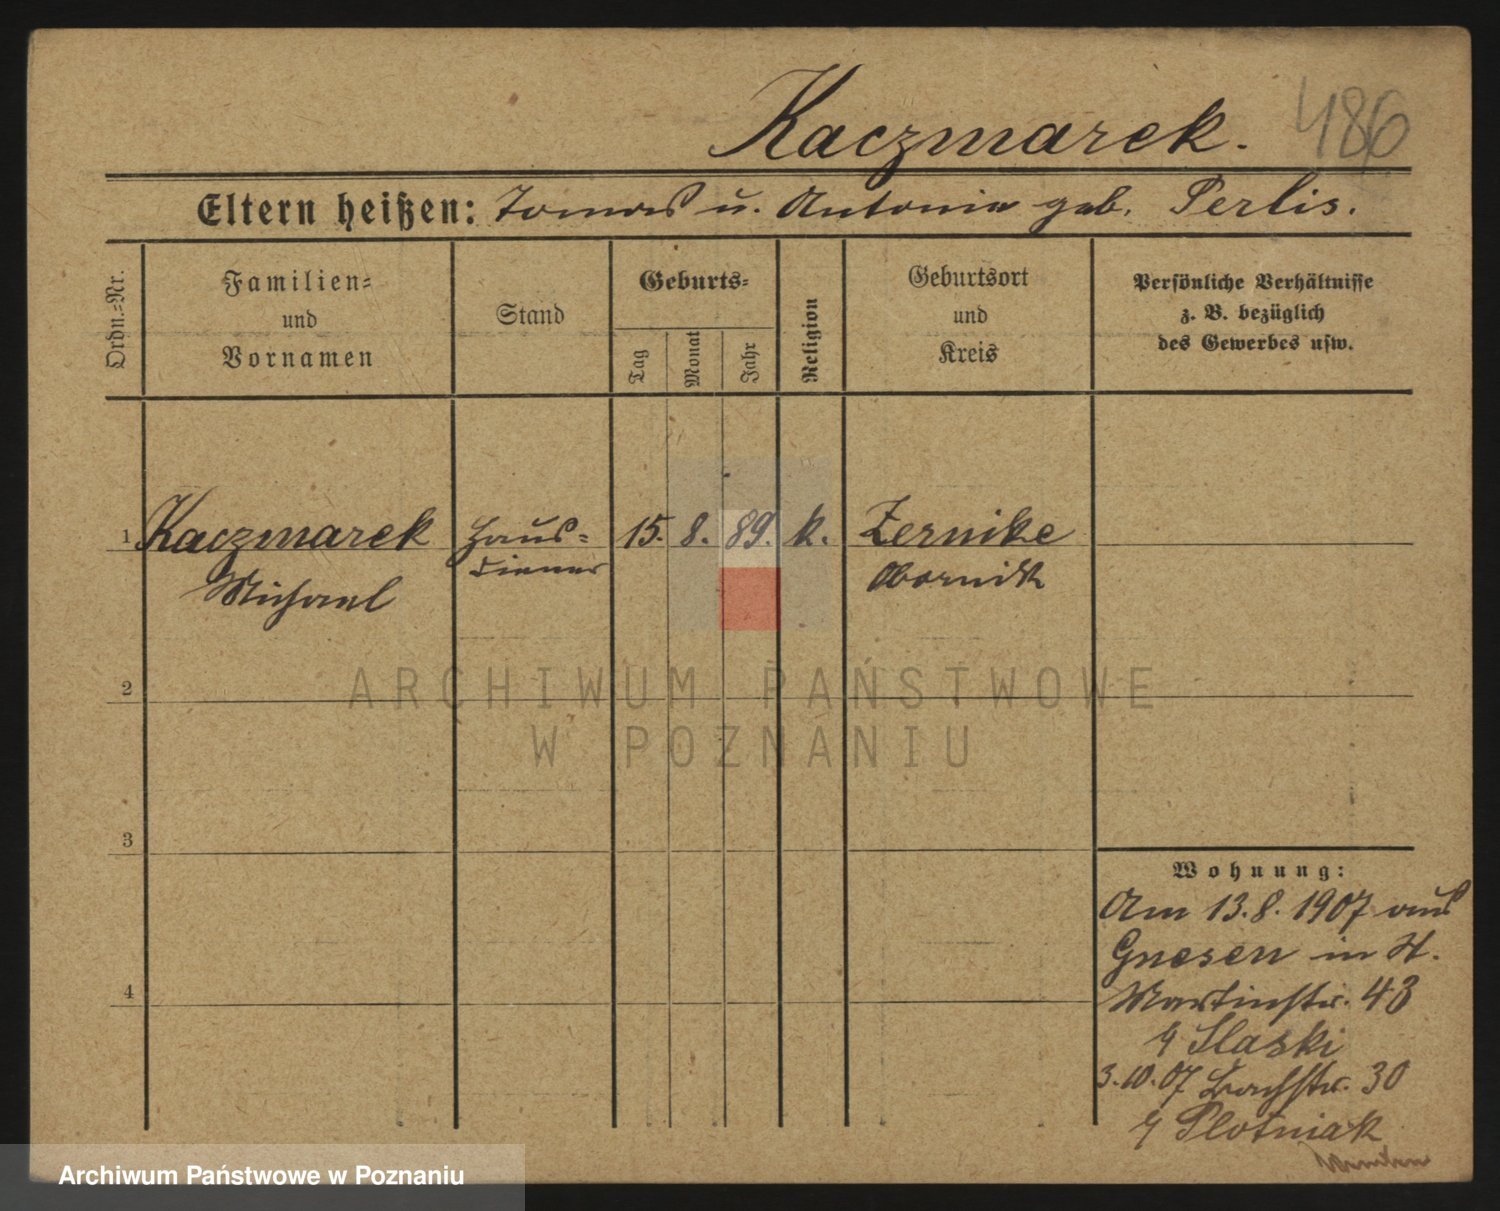 Kaczmarek. 486
Eltern heißen: Tomas u. Antonia geb. Perlis.
Ordn.=Nr.
Familien=
und
Vornamen
Stand
Geburts=
Tag
Monat
Jahr
Religion
Geburtsort
und
Kreis
Persönliche Verhältnisse
z. B. bezüglich
des Gewerbes usw.
1 Kaczmarek Haus= 15. 8. 89. k. Zernike
Michael diener Obornik
2
ARCHIWUM PAŃSTWOWE
W POZNANIU
3
Wohnung:
Am 13.8.1907 aus
Gnesen in St.
4
Martinstr. 43
Slaski
3.10.07 Bachstr. 30
Plotniak
Archiwum Państwowe w Poznaniu